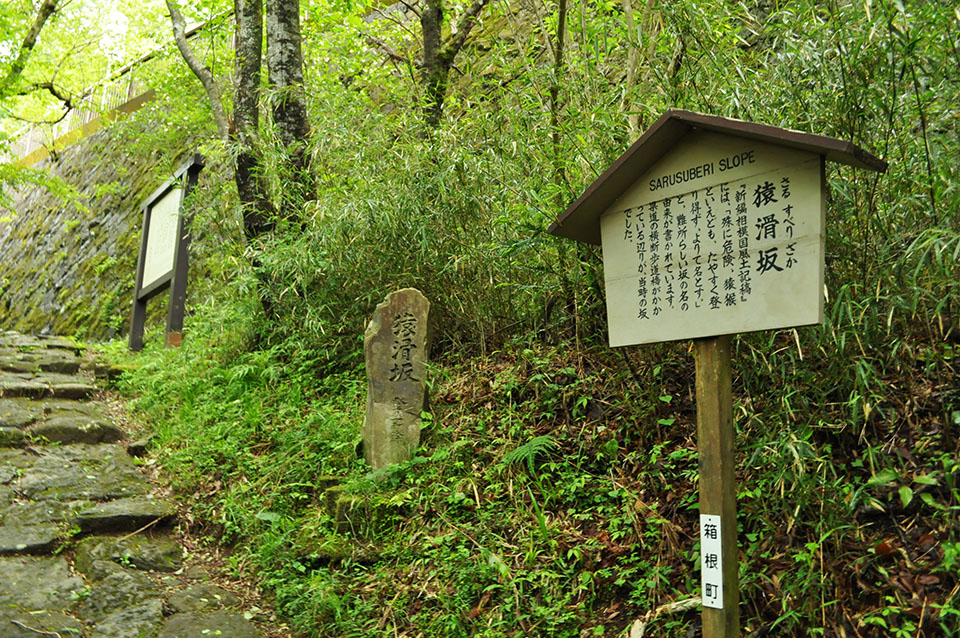 SARUSUBERI SLOPE
さる すべり ざか
猿滑坂
『新編相模国風土記稿』
には、「殊に危険、猿猴
といえども、たやすく登
り得ず、よりて名とす。」
と、難所らしい坂の名の
由来が書かれています。
県道の横断歩道橋がかか
っている辺りが、当時の坂
でした。
箱根町
猿滑坂